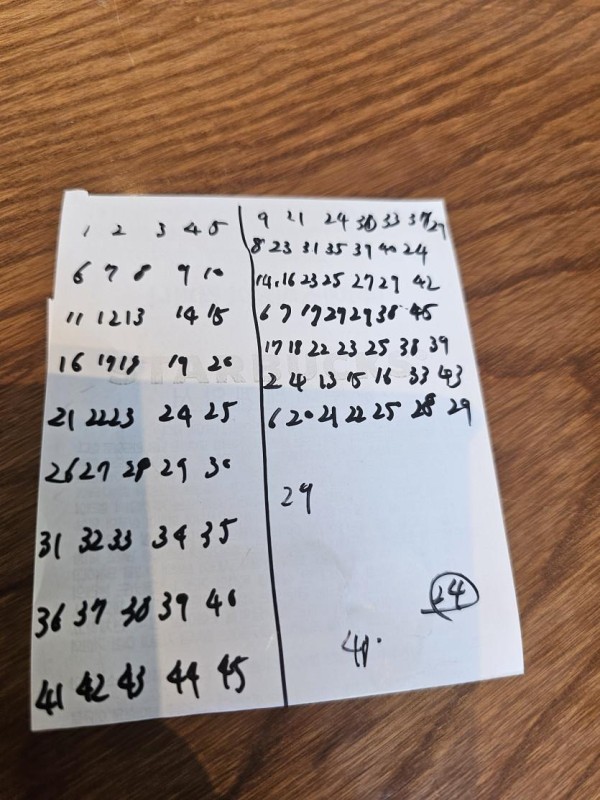 1 2 3 4 5
6 7 8 9 10
11 12 13 14 15
16 17 18 19 20
21 22 23 24 25
26 27 28 29 30
31 32 33 34 35
36 37 38 39 40
41 42 43 44 45
9 21 24 30 33 37 29
8 23 31 35 39 40 24
14, 16 23 25 27 29 42
6 7 19 29 29 38 45
17 18 22 23 25 38 39
2 4 13 15 16 33 43
6 20 21 22 25 28 29
29
24